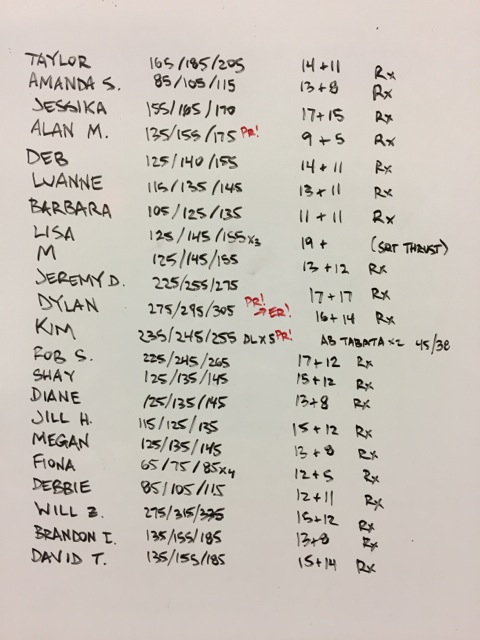 TAYLOR 165/185/205 14+11 Rx
AMANDA S. 85/105/115 13+8 Rx
JESSIKA 155/165/170 17+15 Rx
ALAN M. 135/155/175 PR! 9+5 Rx
DEB 125/140/155 14+11 Rx
LUANNE 115/135/145 13+11 Rx
BARBARA 105/125/135 11+11 Rx
LISA 125/145/155x3 19+ (SQT THRUST)
M 125/145/155 13+12 Rx
JEREMY D. 225/255/275 17+17 Rx
DYLAN 275/295/305 PR! →ER! 16+14 Rx
KIM 235/245/255 DLx5 PR! AB TABATA x2 45/38
ROB S. 225/245/265 17+12 Rx
SHAY 125/135/145 15+12 Rx
DIANE 125/135/145 13+8 Rx
JILL H. 115/125/135 15+12 Rx
MEGAN 125/135/145 13+8 Rx
FIONA 65/75/85x4 12+5 Rx
DEBBIE 85/105/115 12+11 Rx
WILL B. 275/315/335 15+12 Rx
BRANDON I. 135/155/185 13+8 Rx
DAVID T. 135/155/185 15+14 Rx